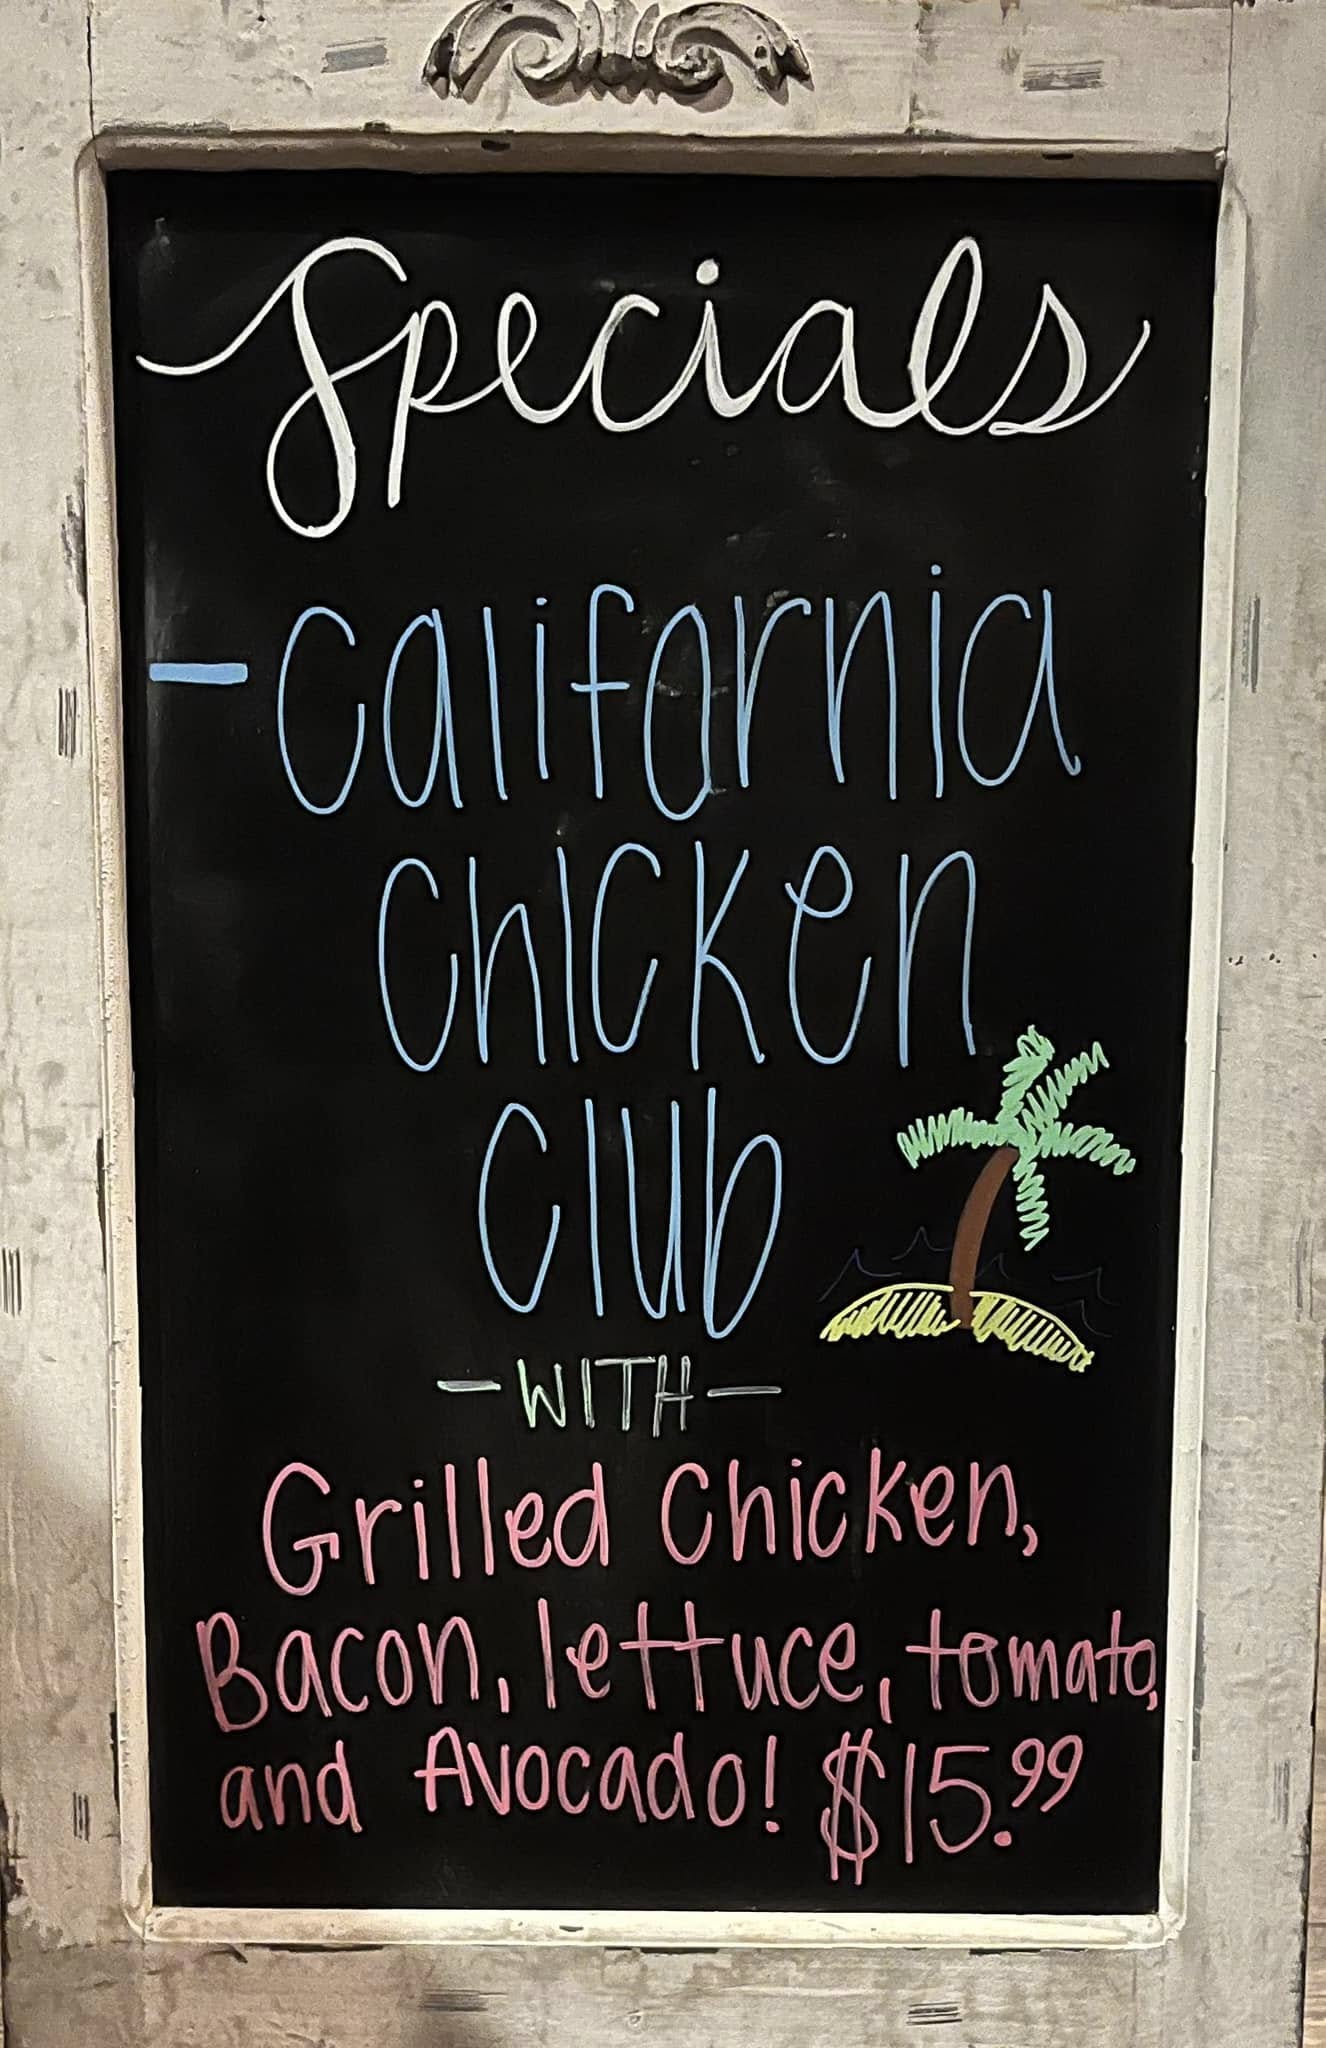 Specials
-California
Chicken
Club
-WITH-
Grilled Chicken,
Bacon, lettuce, tomato,
and Avocado! $15.99